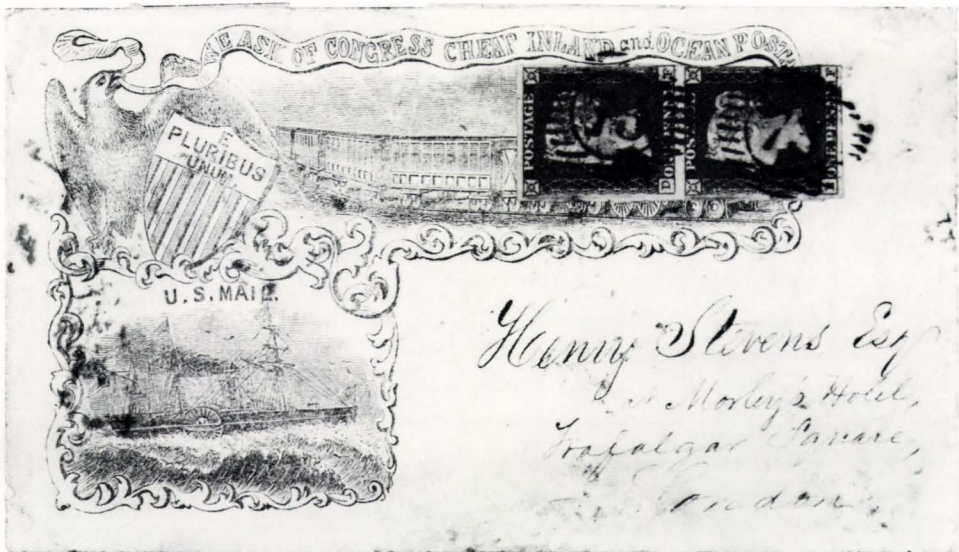 WE ASK OF CONGRESS CHEAP INLAND and OCEAN POST
E
PLURIBUS
UNUM
POSTAGE
ONE PENNY
POSTAGE
ONE PENNY
U.S. MAIL.
Henry Stevens Esq
at Morley's Hotel,
Trafalgar Square,
London